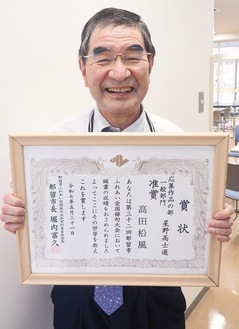 賞状
応募作品の部
一般部門 星野高士選
准賞
高田松風
あなたは第三十二回都留市
ふれあい全国俳句大会において
頭書の成績をおさめられました
よってここにその栄誉を称え
これを賞します
令和六年五月三十一日
都留市長 堀内富久